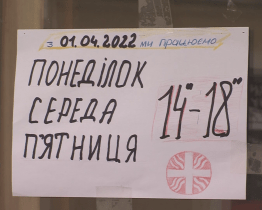 з 01.04.2022 ми працюємо
ПОНЕДІЛОК
СЕРЕДА
П'ЯТНИЦЯ
14°°-18°°